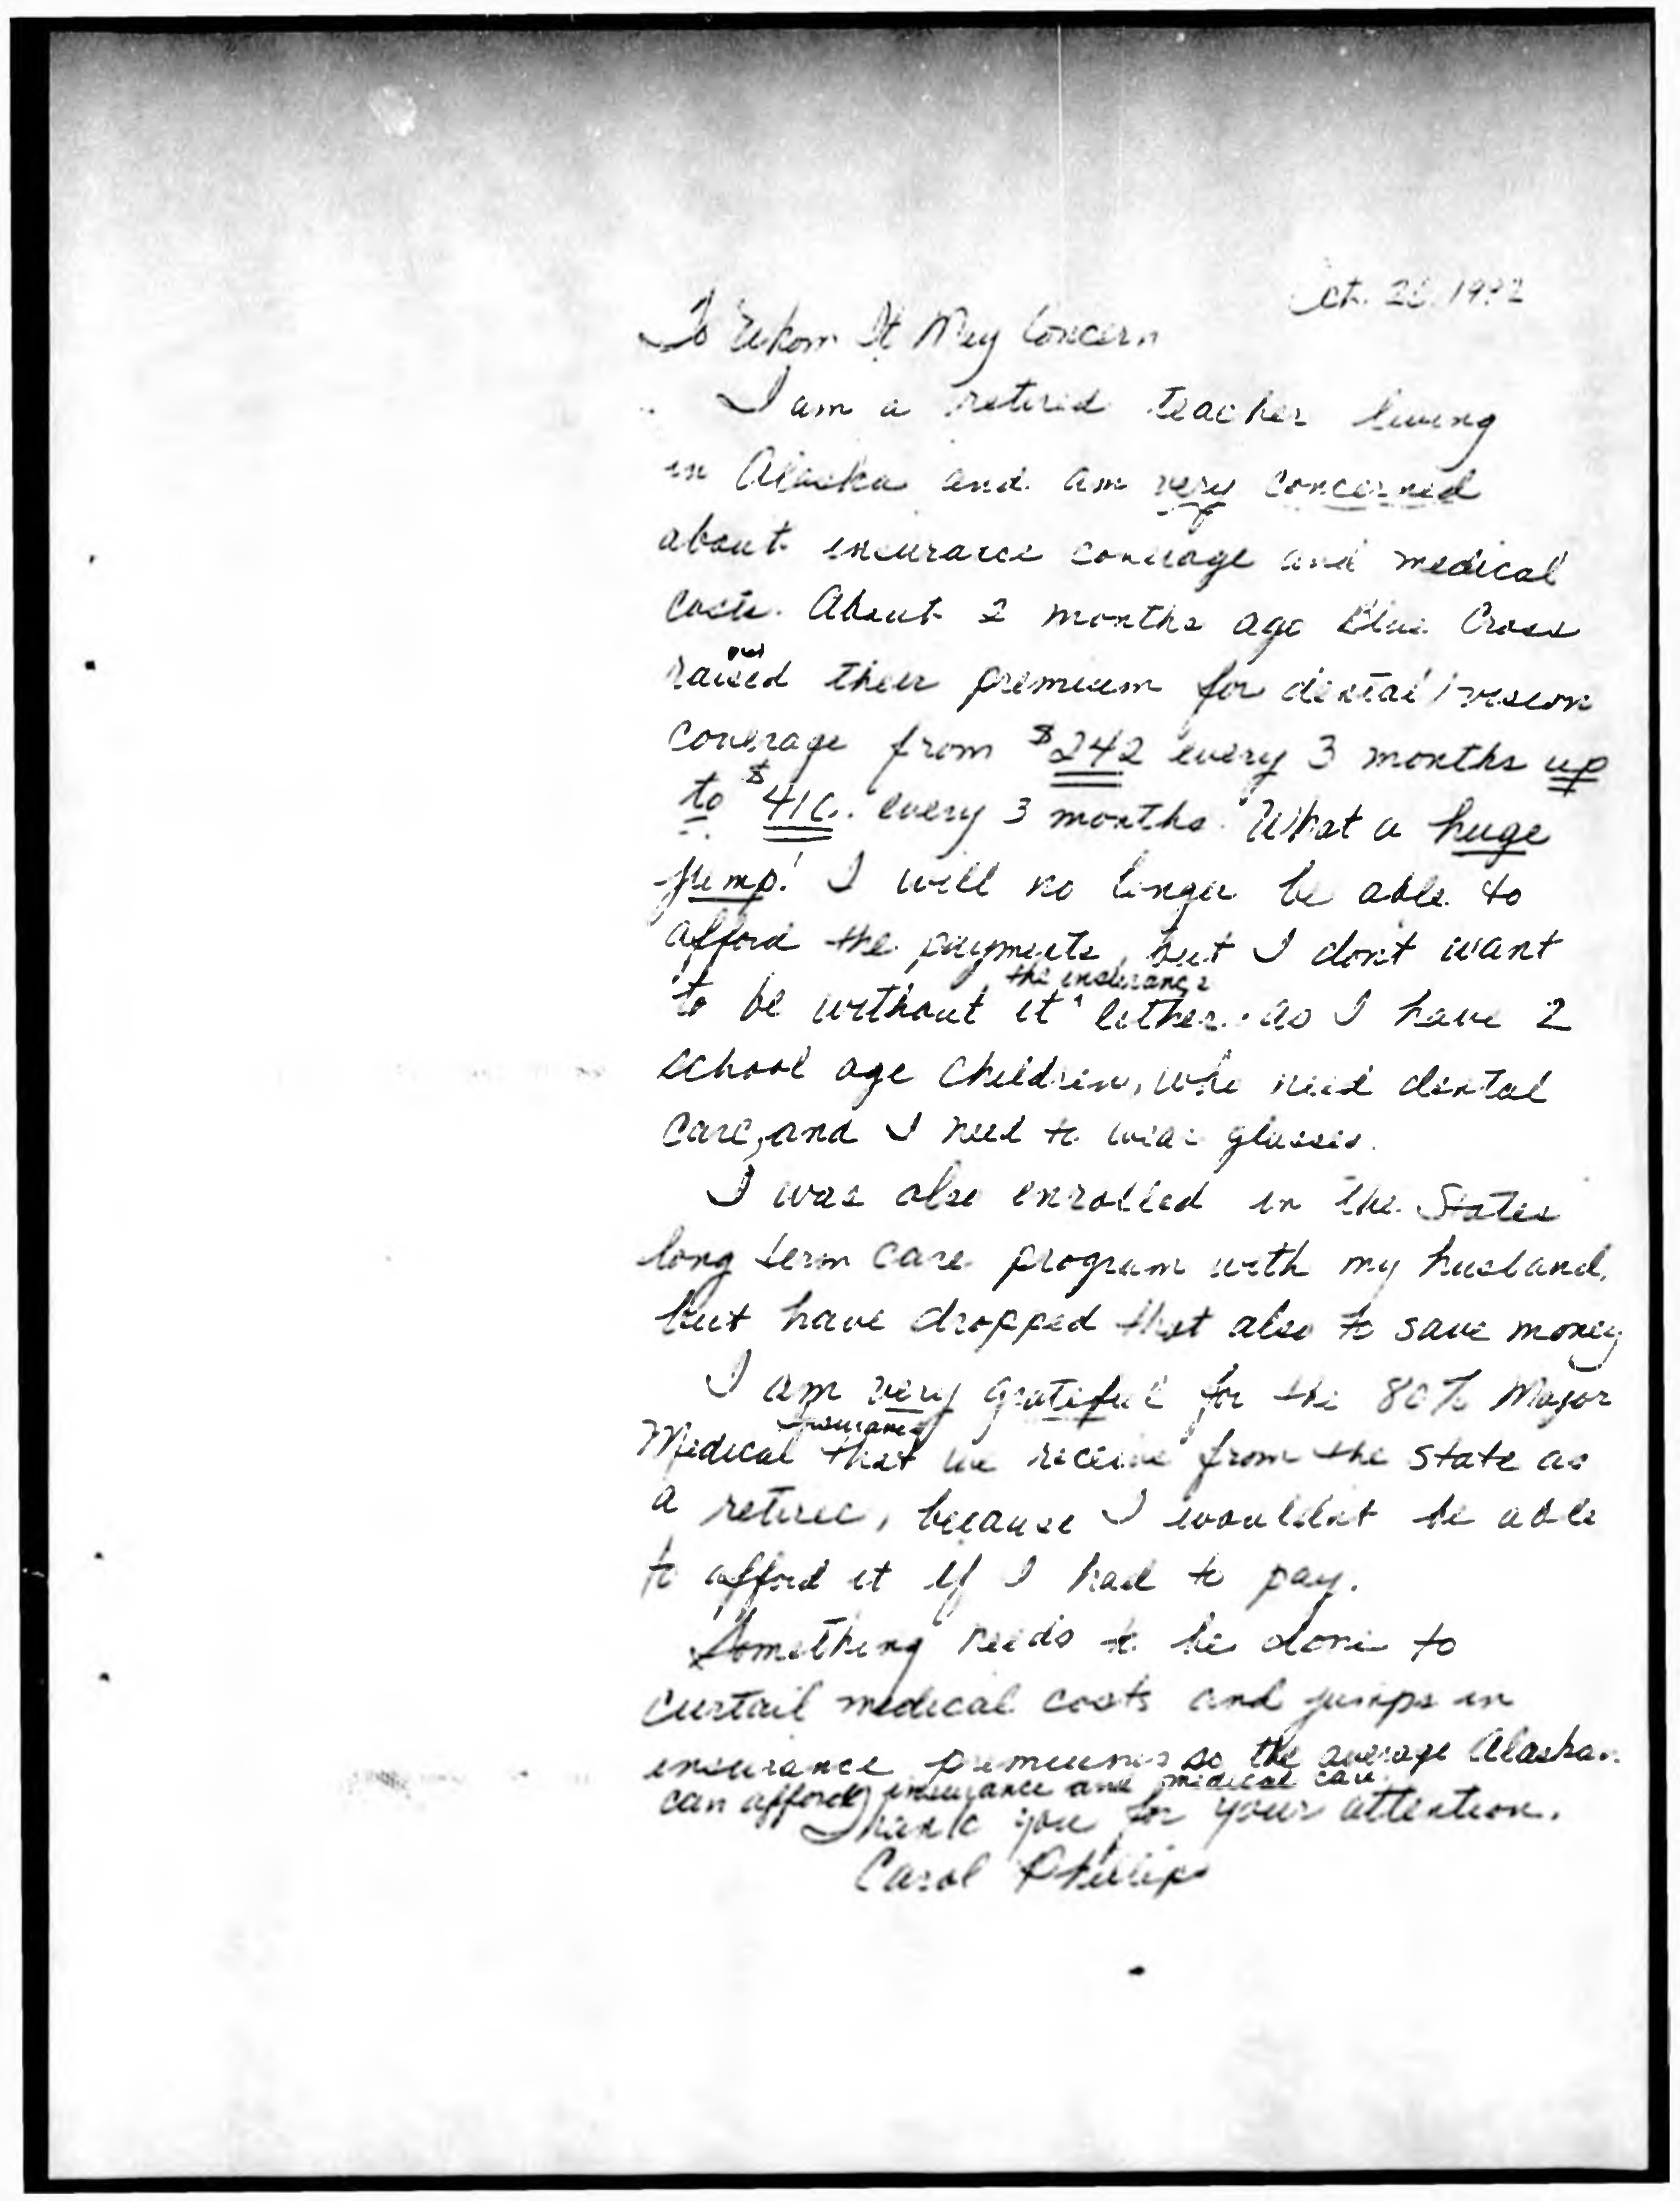 Oct. 1992
To Whom It May Concern
I am a retired teacher living
in Alaska and am very concerned
about insurance coverage and medical
costs. About 2 months ago Blue Cross
our
raised their premium for dental/vision
coverage from $242 every 3 months up
to $410. every 3 months. What a huge
jump! I will no longer be able to
afford the payments, but I don't want
the insurance
to be without it either. as I have 2
school age children, who need dental
care, and I need to wear glasses.
I was also enrolled in the States
long term care program with my husband,
but have dropped that also to save money
I am very grateful for the 80% Major
insurance
Medical that we receive from the state as
a retiree, because I wouldn't be able
to afford it if I had to pay.
Something needs to be done to
curtail medical costs and jumps in
insurance premiums so the average Alaskan
can afford insurance and medical care.
Thank you for your attention.
Carol Phillips